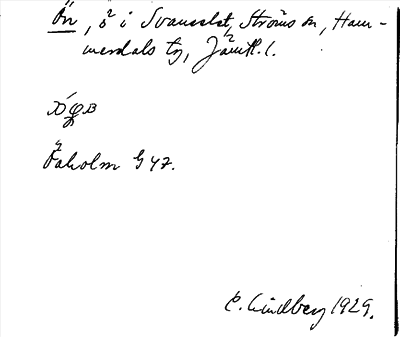 Ön, ö i Svaneselet, Ströms sn, Ham-
merdals tg, Jämtl. l.
Öaholm G 47.
E. Lindberg 1929.